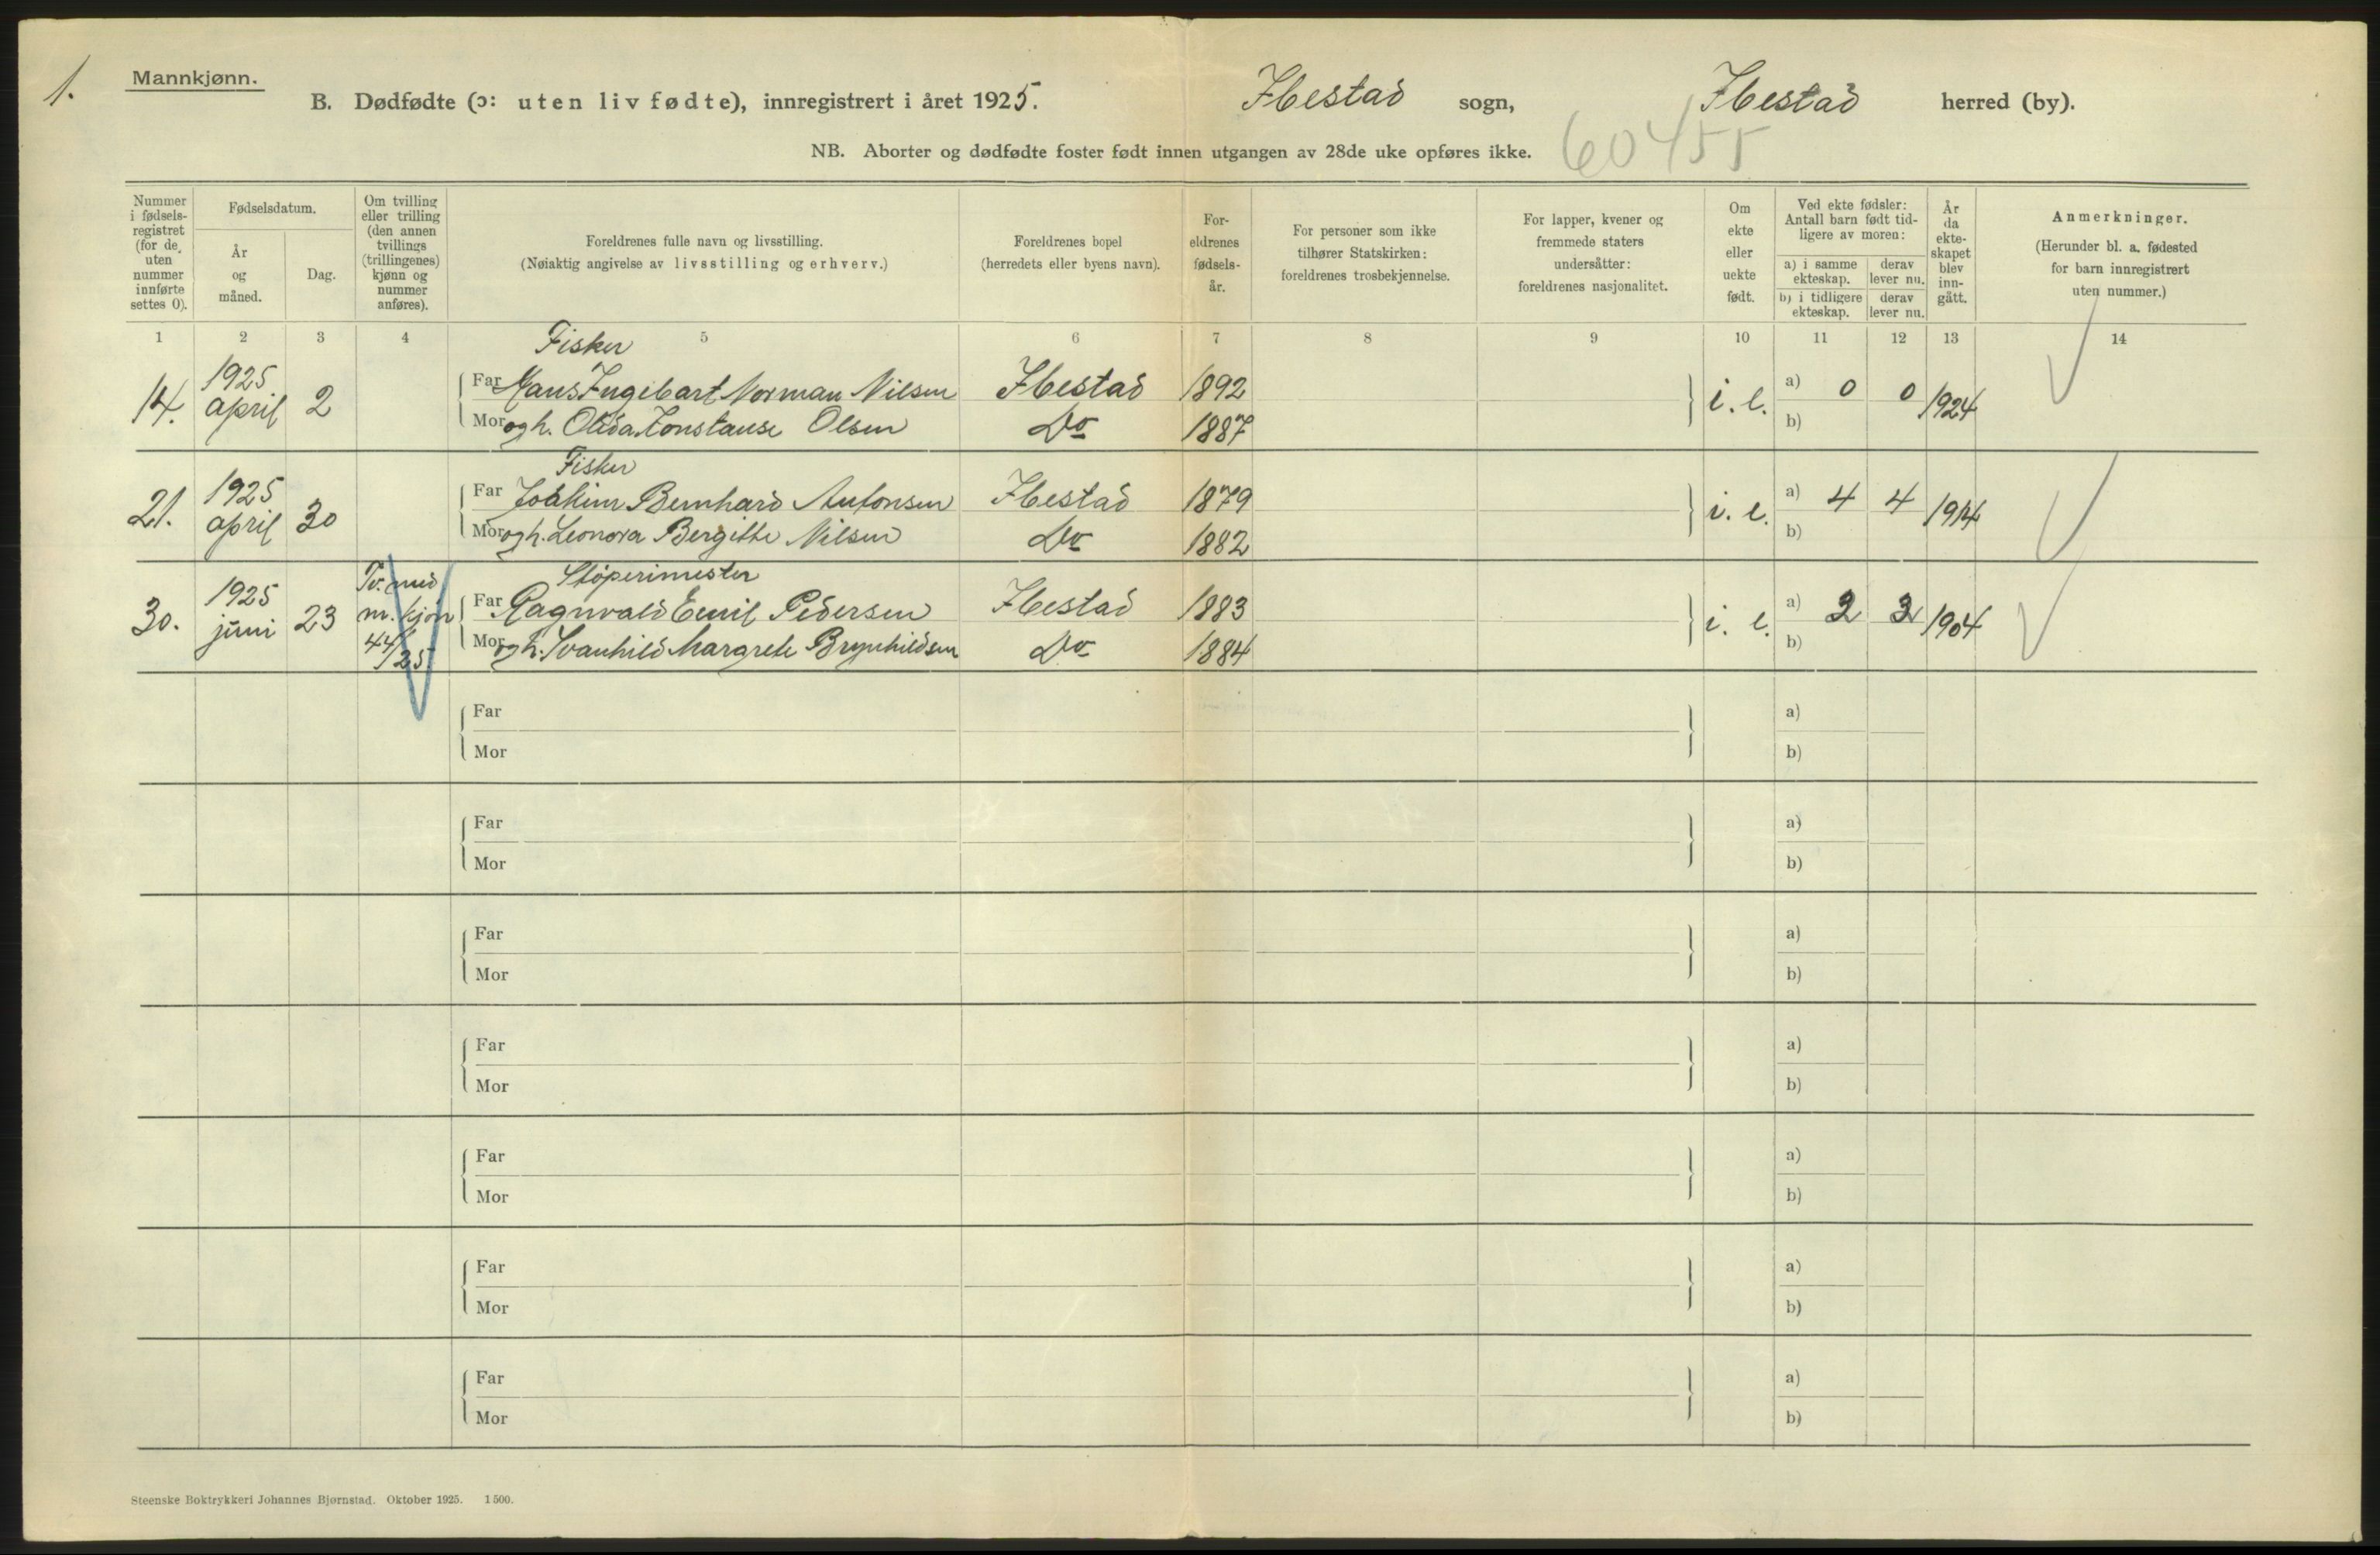 1.
Mannkjønn.
B. Dødfødte (ɔ: uten liv fødte), innregistrert i året 1925. Ibestad sogn, Ibestad herred (by).
NB. Aborter og dødfødte foster født innen utgangen av 28de uke opføres ikke. 60455
Nummer
i fødsels-
registret
(for de
uten
nummer
innførte
settes 0).
Fødselsdatum.
År
og
måned.
Dag.
Om tvilling
eller trilling
(den annen
tvillings
(trillingenes)
kjønn og
nummer
anføres).
Foreldrenes fulle navn og livsstilling.
(Nøiaktig angivelse av livsstilling og erhverv.)
Foreldrenes bopel
(herredets eller byens navn).
For-
eldrenes
fødsels-
år.
For personer som ikke
tilhører Statskirken:
foreldrenes trosbekjennelse.
For lapper, kvener og
fremmede staters
undersåtter:
foreldrenes nasjonalitet.
Om
ekte
eller
uekte
født.
Ved ekte fødsler:
Antall barn født tid-
ligere av moren:
a) i samme
ekteskap.
derav
lever nu.
b) i tidligere
ekteskap.
derav
lever nu.
År
da
ekte-
skapet
blev
inn-
gått.
Anmerkninger.
(Herunder bl. a. fødested
for barn innregistrert
uten nummer.)
1 2 3 4 5 6 7 8 9 10 11 12 13 14
Fisker
14. 1925 april 2 Far Hans Ingebart Norman Nilsen Ibestad 1892 i. e. a) 0 0 1924
Mor og h. Olida Konstanse Olsen Do 1887 b)
Fisker
21. 1925 april 30 Far Joakim Bernhard Antonsen Ibestad 1879 i. e. a) 4 4 1914
Mor og h. Leonora Bergitte Nilsen Do 1882 b)
Støperimester
30. 1925 juni 23 Tv. med m. kjøn 44/25 Far Ragnvald Emil Pedersen Ibestad 1883 i. e. a) 1904
Mor og h. Svanhild Margrete Brynhildsen Do 1884 b)
Far a)
Mor b)
Far a)
Mor b)
Far a)
Mor b)
Far a)
Mor b)
Far a)
Mor b)
Far a)
Mor b)
Far a)
Mor b)
Steenske Boktrykkeri Johannes Bjørnstad. Oktober 1925. 1500.